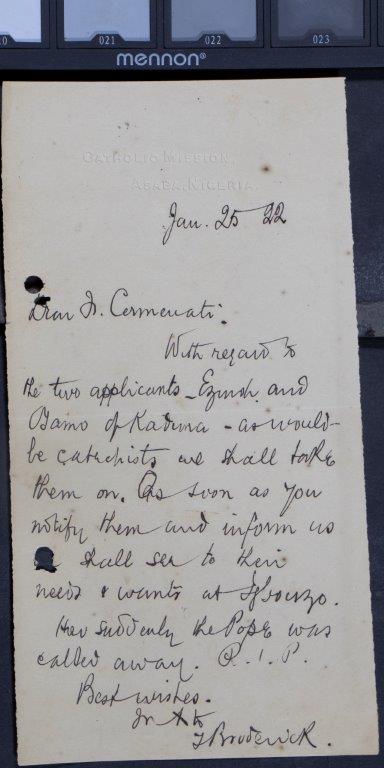 021
022
023
mennon®
CATHOLIC MISSION,
ASABA, NIGERIA.
Jan. 25 22
Dear Fr. Cermenati.
With regard to
the two applicants - and
of Kaduna - as would-
be catechists we shall take
them on. As soon as you
notify them and inform us
shall see to their
needs & wants at
How suddenly the Pope was
called away. R.I.P.
Best wishes.
In
Broderick.